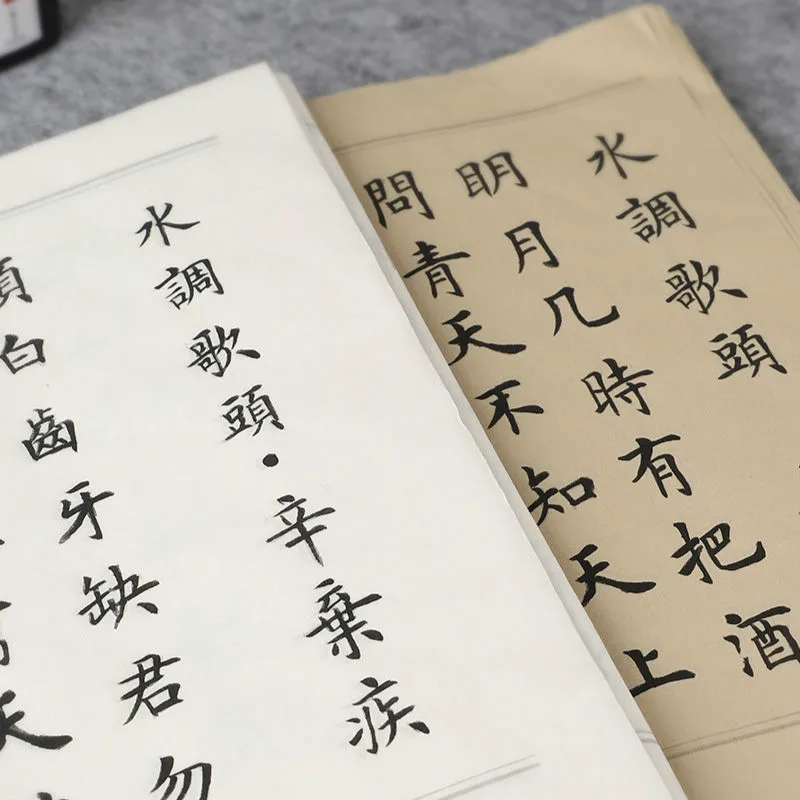 水調歌頭
明月几時有把酒
問青天不知天上
水調歌頭·辛棄疾
頭白齒牙缺君勿
天